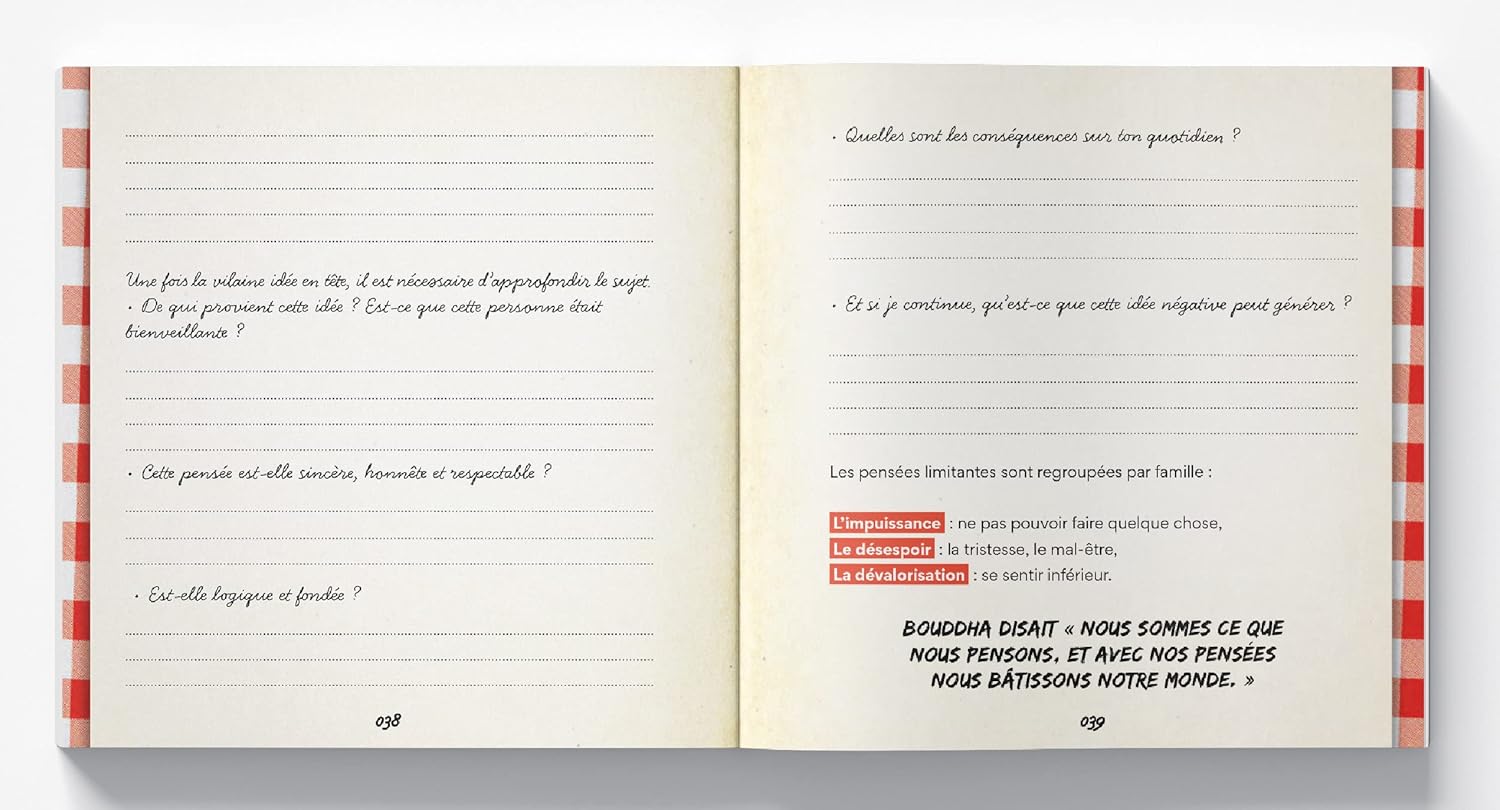 Une fois la vilaine idée en tête, il est nécessaire d'approfondir le sujet.
• De qui provient cette idée ? Est-ce que cette personne était
bienveillante ?
• Cette pensée est-elle sincère, honnête et respectable ?
• Est-elle logique et fondée ?
038
• Quelles sont les conséquences sur ton quotidien ?
• Et si je continue, qu'est-ce que cette idée négative peut générer ?
Les pensées limitantes sont regroupées par famille :
L'impuissance : ne pas pouvoir faire quelque chose,
Le désespoir : la tristesse, le mal-être,
La dévalorisation : se sentir inférieur.
BOUDDHA DISAIT « NOUS SOMMES CE QUE
NOUS PENSONS, ET AVEC NOS PENSÉES
NOUS BÂTISSONS NOTRE MONDE. »
039